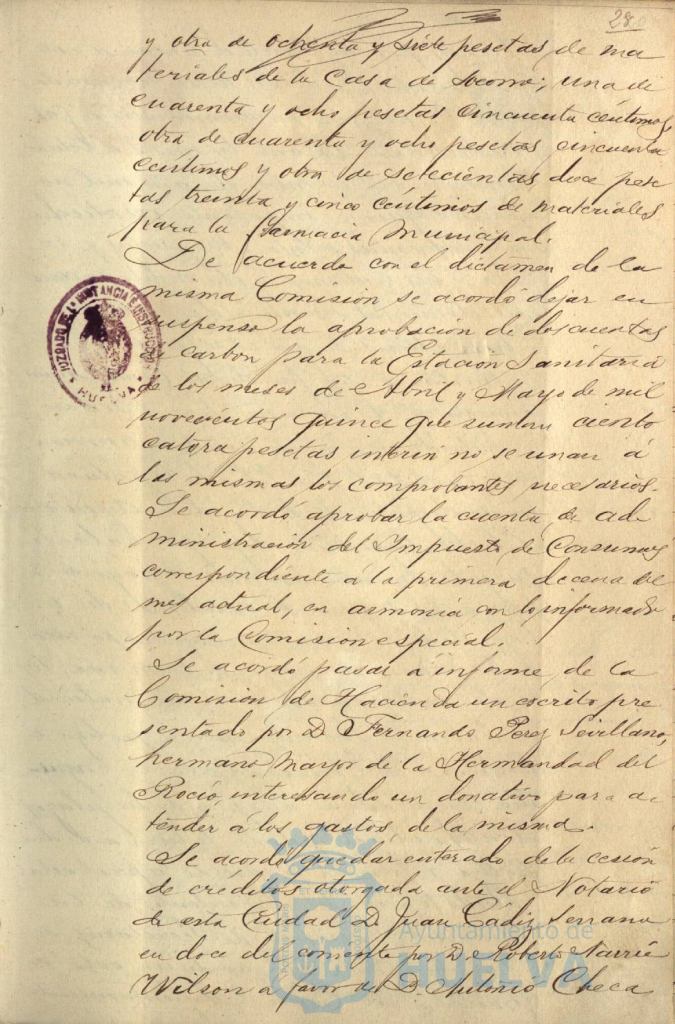 28
y otra de ochenta y siete pesetas de ma
teriales de la Casa de Socorro; una de
cuarenta y ocho pesetas cincuenta céntimos,
otra de cuarenta y ocho pesetas cincuenta
céntimos y otra de setecientas doce pese
tas treinta y cinco céntimos de materiales
para la Farmacia Municipal.
De acuerdo con el dictamen de la
misma Comisión se acordó dejar en
suspenso la aprobación de dos cuentas
de carbon para la Estación Sanitaria
de los meses de Abril y Mayo de mil
novecientos quince que suman ciento
catorce pesetas interin no se unan á
las mismas los comprobantes necesarios.
Se acordó aprobar la cuenta de ad
ministración del Impuesto de Consumos
correspondiente á la primera decena del
mes actual, en armonia con lo informado
por la Comisión especial.
Se acordó pasar a informe de la
Comisión de Hacienda un escrito pre
sentado por D. Fernando Perez Sevillano,
hermano mayor de la Hermandad del
Rocio, interesando un donativo para a
tender á los gastos de la misma.
Se acordó quedar enterado de la cesión
de créditos otorgada ante el Notario
de esta Ciudad D. Juan Cádiz Serrano
en doce del corriente por D. Roberto
Wilson a favor de D. Antonio Checa
JUZGADO DE 1ª INSTANCIA E INSTRUCCION
HUELVA
Ayuntamiento de
HUELVA